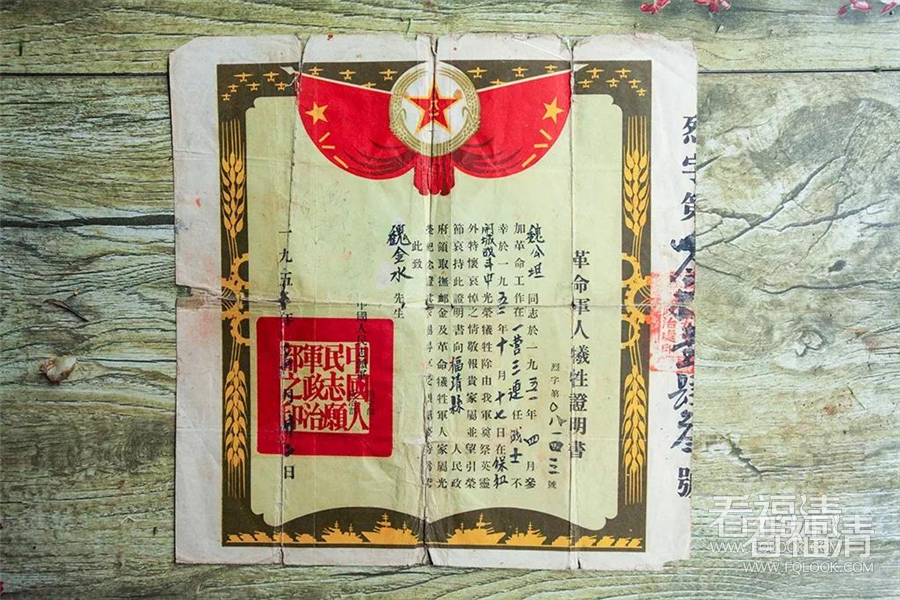 烈字第
號
革命軍人犧牲證明書
烈字第0八一四三號
魏公坦同志於一九五一年四月參
加革命工作在一營三連任战士不
幸於一九五年十月十七日在保
開城战斗中光榮犧牲除由我軍奠祭英靈
外特懷哀悼之情敬報貴家屬並望引榮
節哀持此證明書向福靖縣人民政
府領取撫卹金及革命犧牲軍人家屬光
此致
魏金水先生
中國人民志願軍政治部之印
一九五年月日
看福清
看福清
WWW.FQLOOK.COM